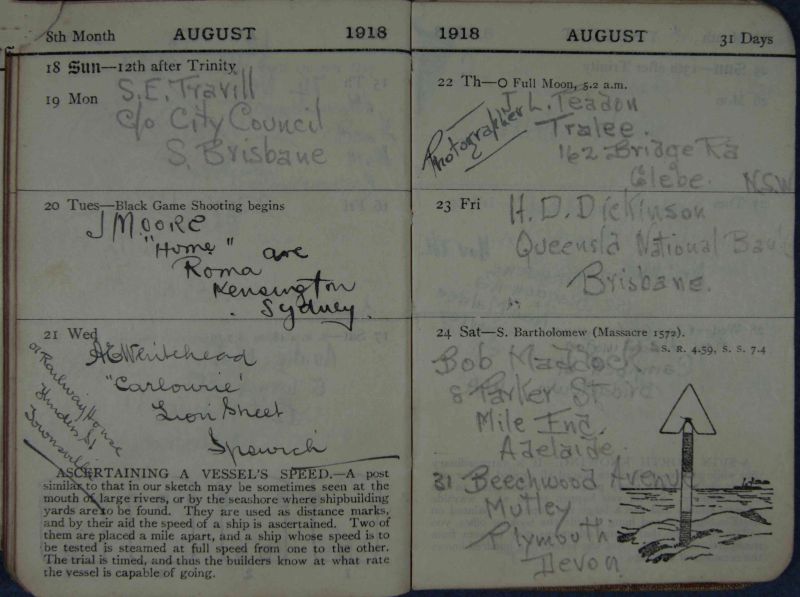 8th Month AUGUST 1918
18 Sun—12th after Trinity
19 Mon S. E. Travill
c/o City Council
S. Brisbane
20 Tues—Black Game Shooting begins
J MOORE
"Home" are
Roma
Kensington
Sydney.
21 Wed
A E Whitehead
"Carlowrie"
Lion Street
Ipswich
or Railway House
Flinders St
Townsville
ASCERTAINING A VESSEL'S SPEED.—A post
similar to that in our sketch may be sometimes seen at the
mouth of large rivers, or by the seashore where shipbuilding
yards are to be found. They are used as distance marks,
and by their aid the speed of a ship is ascertained. Two of
them are placed a mile apart, and a ship whose speed is to
be tested is steamed at full speed from one to the other.
The trial is timed, and thus the builders know at what rate
the vessel is capable of going.
1918 AUGUST 31 Days
22 Th—O Full Moon, 5.2 a.m.
J. L. Teadon
Photographer
Tralee.
162 Bridge Rd
Glebe. N.S.W
23 Fri H. D. Dickinson
Queensld National Bank
Brisbane.
24 Sat—S. Bartholomew (Massacre 1572).
S. R. 4.59, S. S. 7.4
Bob Maddock
8 Parker St
Mile End.
Adelaide.
31 Beechwood Avenue
Mutley
Plymouth
Devon.